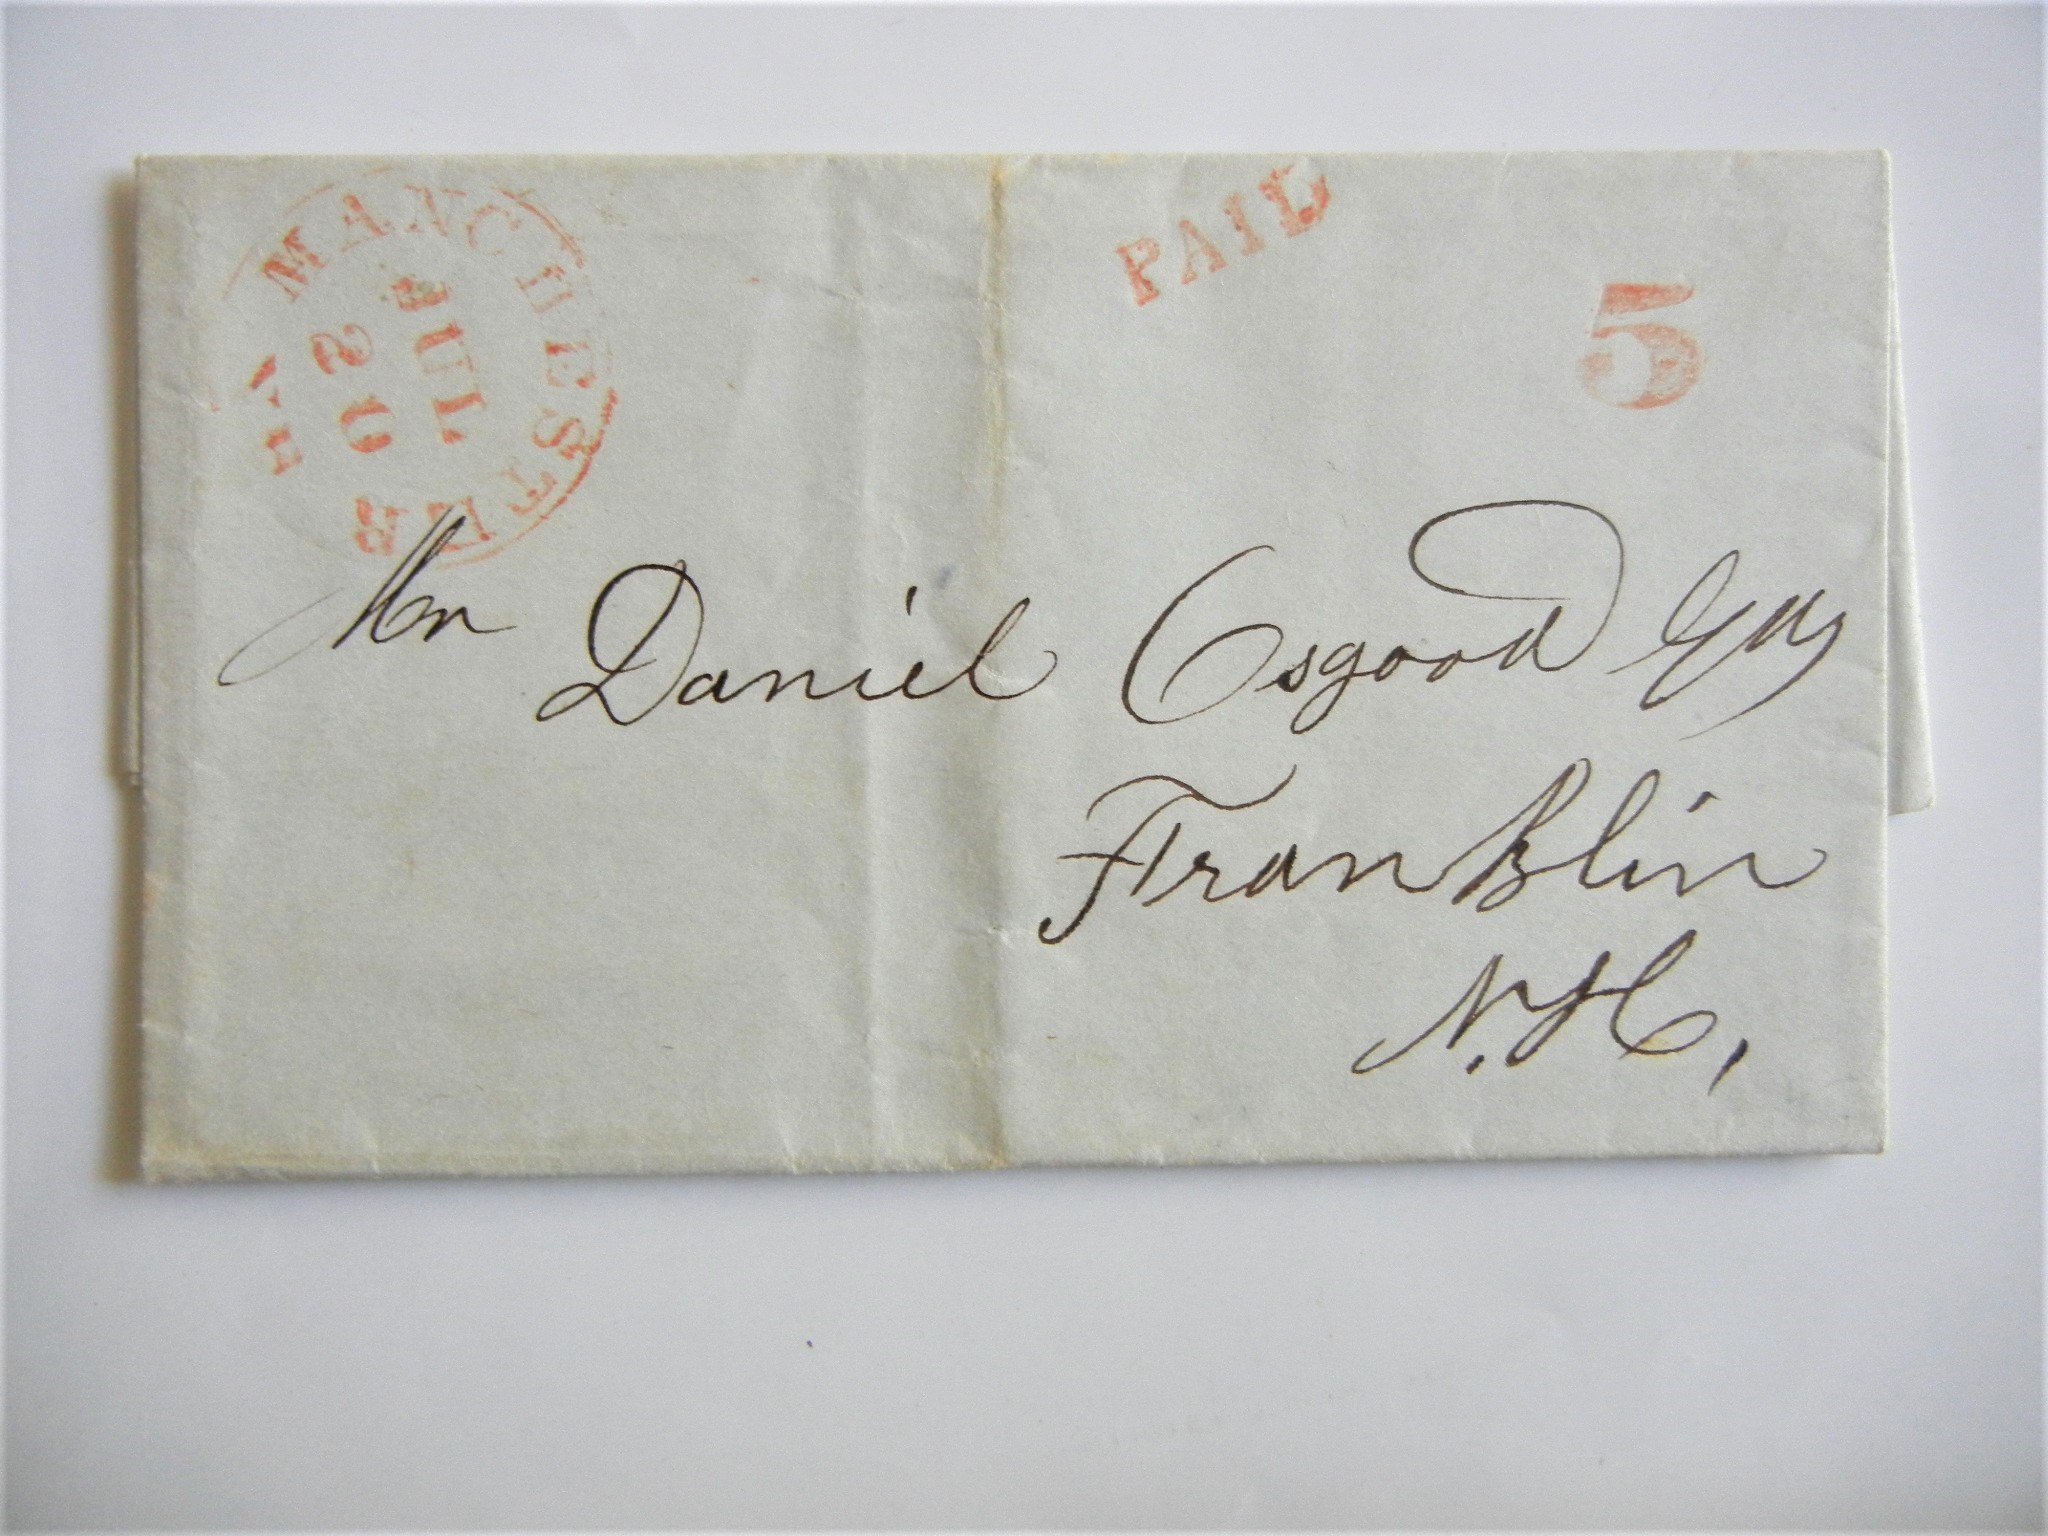 MANCHESTER
JUL
20
PAID
5
Mr Daniel Osgood Esq
Franklin
N.H,